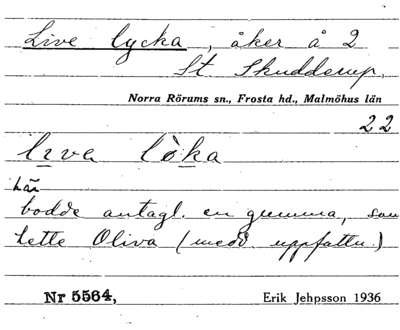 Live lycka, åker å 2
St Skudderup,
Norra Rörums sn., Frosta hd., Malmöhus län
22
līva lồka
här
bodde antagl. en gumma, som
hette Oliva (medd. uppfattn.)
Nr 5564, Erik Jehpsson 1936